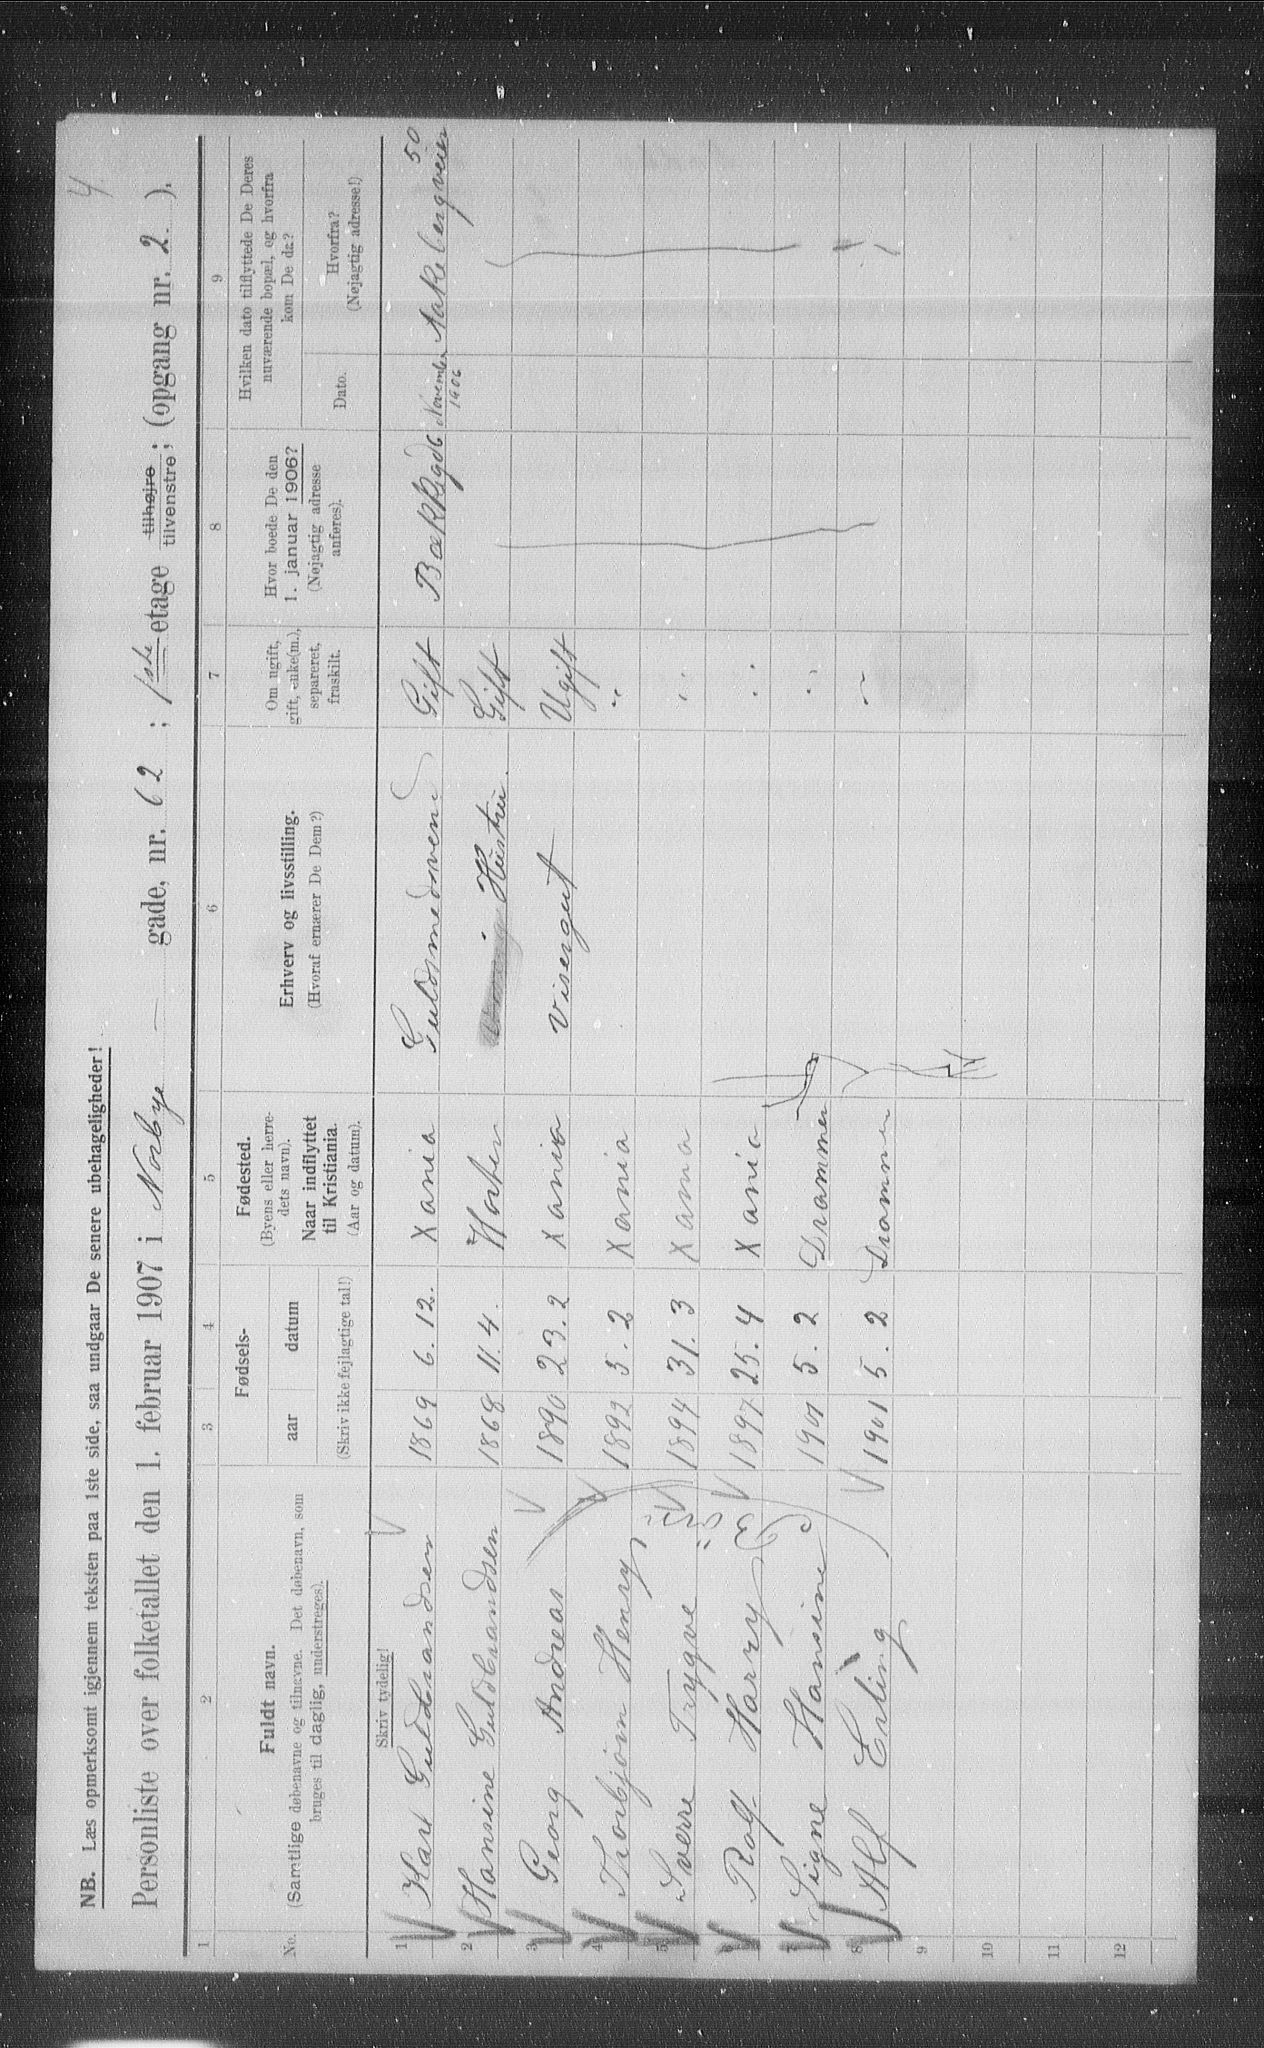 4
NB. Læs opmerksomt igjennem teksten paa 1ste side, saa undgaar De senere ubehageligheder!
Personliste over folketallet den 1. februar 1907 i Norbye gade, nr. 62; 1ste etage tilhøjre tilvenstre; (opgang nr. 2).
1 2 3 4 5 6 7 8 9
No.
Fuldt navn.
(Samtlige døbenavne og tilnavne. Det døbenavn, som
bruges til daglig, understreges).
Fødsels-
aar datum
(Skriv ikke fejlagtige tal!)
Fødested.
(Byens eller herre-
dets navn).
Naar indflyttet
til Kristiania.
(Aar og datum).
Erhverv og livsstilling.
(Hvoraf ernærer De Dem?)
Om ugift,
gift, enke(m.),
separeret,
fraskilt.
Hvor boede De den
1. januar 1906?
(Nøjagtig adresse
anføres).
Hvilken dato tilflyttede De Deres
nuværende bopæl, og hvorfra
kom De da?
Dato.
Hvorfra?
(Nøjagtig adresse!)
Skriv tydelig!
1 Karl Guldbrandsen 1869 6. 12. Xania Guldsmedsvend Gift Bækkegd 6 November 1906 Aakebergveien 50
2 Hansine Guldbrandsen 1868 11. 4. Horten Hustru Gift
3 Georg Andreas 1890 23. 2 Xania Visergut Ugift
4 Thorbjørn Henry 1892 5. 2 Xania "
5 Sverre Trygve 1894 31. 3 Xania "
6 Rolf Harry 1897 25. 4 Xania "
7 Signe Hansine 1901 5. 2 Drammen "
8 Alf Erling 1901 5. 2 Drammen "
9
10
11
12